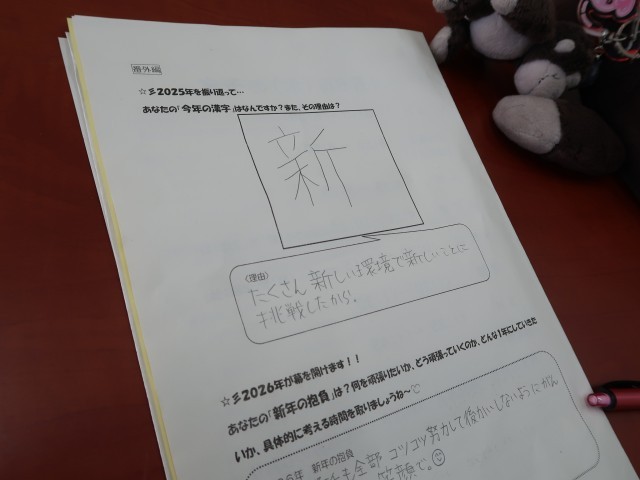 番外編
☆彡2025年を振り返って…
あなたの「今年の漢字」はなんですか？また、その理由は？
新
〈理由〉
たくさん新しい環境で新しいことに
挑戦したから。
☆彡2026年が幕を開けます！！
あなたの「新年の抱負」は？何を頑張りたいか、どう頑張っていくのか、どんな1年にしていきた
いか、具体的に考える時間を取りましょうね～♡
新年の抱負
全部 コツコツ努力して後かいしないようにがん
笑顔で。